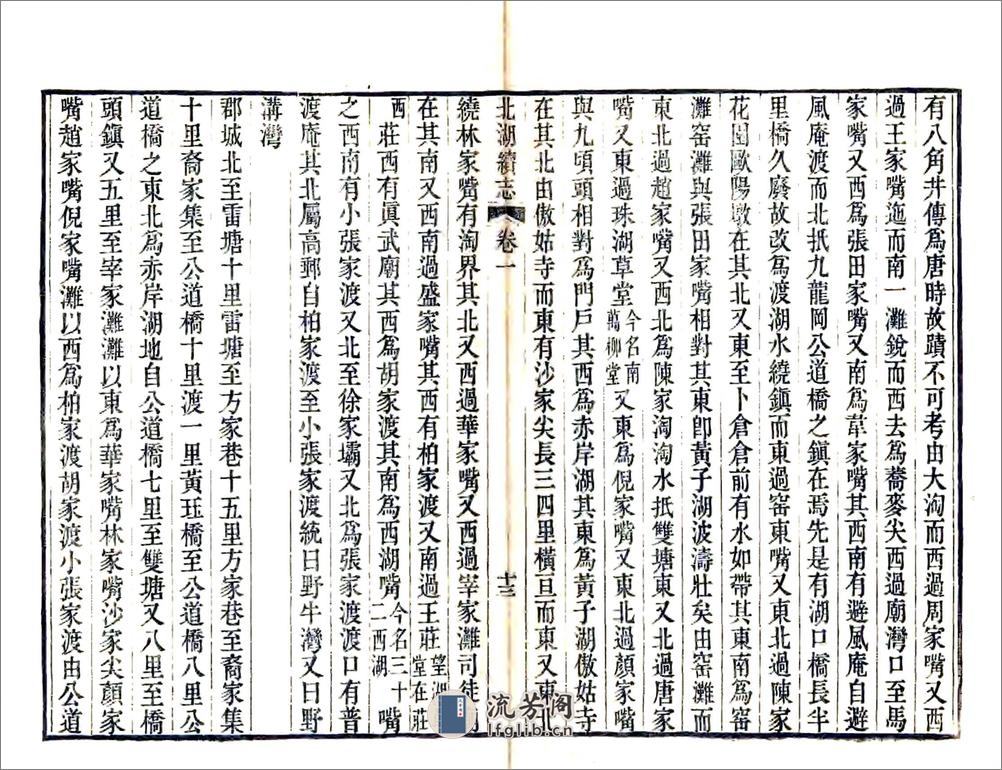 有八角井傳爲唐時故蹟不可考由大淘而西過周家嘴又西
過王家嘴迤而南一灘銳而西去爲蕎麥尖西過廟灣口至馬
家嘴又西爲張田家嘴又南爲葦家嘴其西南有避風庵自避
風庵渡而北抵九龍岡公道橋之鎭在焉先是有湖口橋長半
里橋久廢故改爲渡湖水繞鎭而東過窑東嘴又東北過陳家
花園歐陽墩在其北又東至卜倉倉前有水如帶其東南爲窑
灘窑灘與張田家嘴相對其東卽黃子湖波濤壯矣由窑灘而
東北過趙家嘴又西北爲陳家淘淘水抵雙塘東又北過唐家
嘴又東過珠湖草堂今名南萬柳堂又東爲倪家嘴又東北過顏家嘴
與九頃頭相對爲門戶其西爲赤岸湖其東爲黃子湖傲姑寺
在其北由傲姑寺而東有沙家尖長三四里橫亘而東又東北
北湖續志 卷一 十三
繞林家嘴有淘界其北又西過華家嘴又西過宰家灘司徒
在其南又西南過盛家嘴其西有柏家渡又南過王莊望湖堂在莊
西莊西有眞武廟其西爲胡家渡其南爲西湖嘴今名三十二西湖嘴
之西南有小張家渡又北至徐家壩又北爲張家渡渡口有普
渡庵其北屬高郵自柏家渡至小張家渡統曰野牛灣又曰野
溝灣
郡城北至雷塘十里雷塘至方家巷十五里方家巷至裔家集
十里裔家集至公道橋十里渡一里黃珏橋至公道橋八里公
道橋之東北爲赤岸湖地自公道橋七里至雙塘又八里至橋
頭鎭又五里至宰家灘灘以東爲華家嘴林家嘴沙家尖顏家
嘴趙家嘴倪家嘴灘以西爲柏家渡胡家渡小張家渡由公道
流芳阁
lfglib.cn